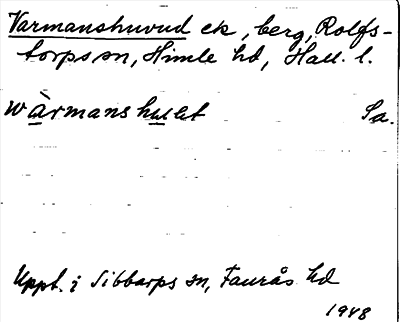 Varmanshuvud ek, berg, Rolfs-
torps sn, Himle hd, Hall. l.
wàrmanshulet Sa.
Uppt. i Sibbarps sn, Faurås hd
1948